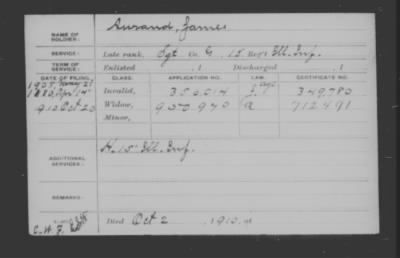 NAME OF SOLDIER: Aurand, James
SERVICE: Late rank, Sgt Co. G, 15 Reg't Ill. Inf.
TERM OF SERVICE: Enlisted , 1 Discharged , 1
DATE OF FILING. CLASS. APPLICATION NO. LAW. CERTIFICATE NO.
1880, Apr 14 Invalid, 350,014 349,780
1910 Oct 20 Widow, 950,940 a 712491
Minor,
ADDITIONAL SERVICES: H. 15" Ill. Inf.
REMARKS:
Died Oct 2, 1910, at